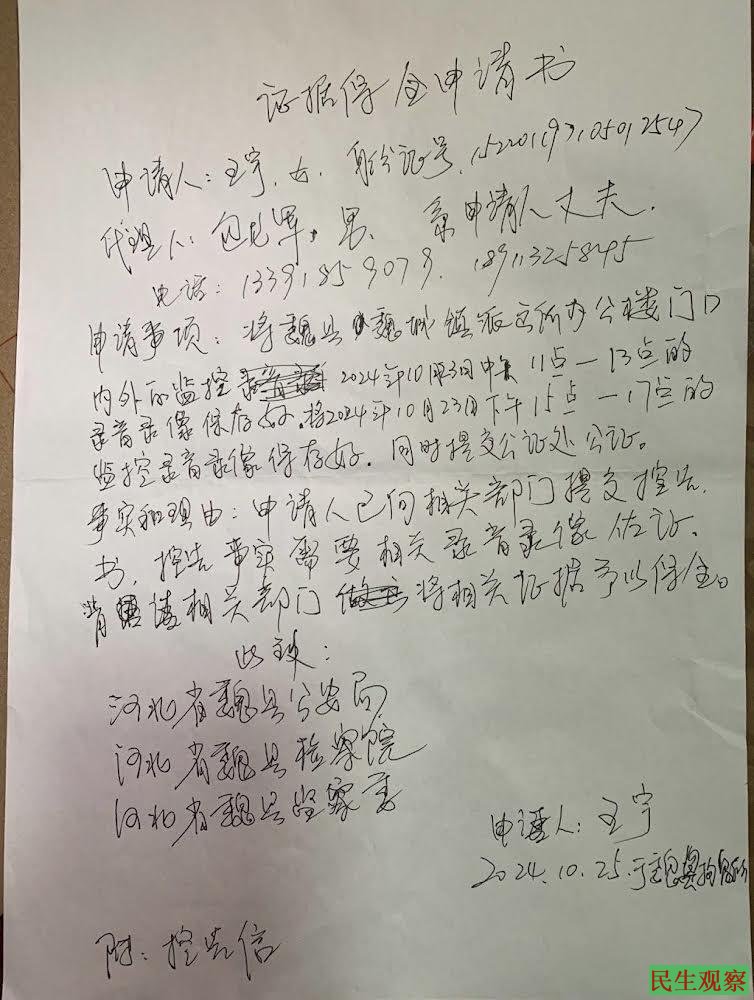 证据保全申请书
申请人：王宇，女，身份证号，152201197105012547
代理人：包龙军，男、系申请人丈夫.
电话：13391859079. 189113258245
申请事项：将魏县魏城镇派出所办公楼门口
内外的监控 2024年10月23日中午11点—13点的
录音录像保存好.将2024年10月23日下午15点—17点的
监控录音录像保存好.同时提交公证处公证。
事实和理由：申请人已向相关部门提交控告
书，控告事实需要相关录音录像佐证.
请相关部门将相关证据予以保全。
此致：
河北省魏县公安局
河北省魏县检察院
河北省魏县监察委
申请人：王宇
2024.10.25.于魏县拘留所
附：控告信
民生观察